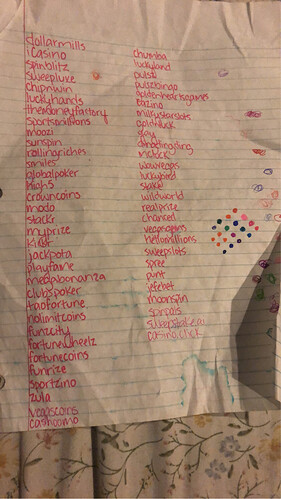 dollarmills
icasino
spinblitz
sweepluxe
chipnwin
luckyhands
themoneyfactory
sportsmillions
moozi
sunspin
rollingriches
smiles
globalpoker
high5
crowncoins
modo
stackr
myprize
kickr
jackpota
playfame
megabonanza
clubspoker
taofortune
nolimitcoins
funzcity
fortunewheelz
fortunecoins
funrize
sportzino
zula
vegascoins
cashoomo
chumba
luckyland
pulsz
pulszbingo
goldenheartsgames
bazino
milkystarslots
goldnluck
dingdingding
mcluck
wowvegas
luckybird
stake
wildworld
realprize
chanced
vegasgems
hellomillions
sweepslots
spree
punt
jefebet
moonspin
spinpals
sweepstake.co
casino.click